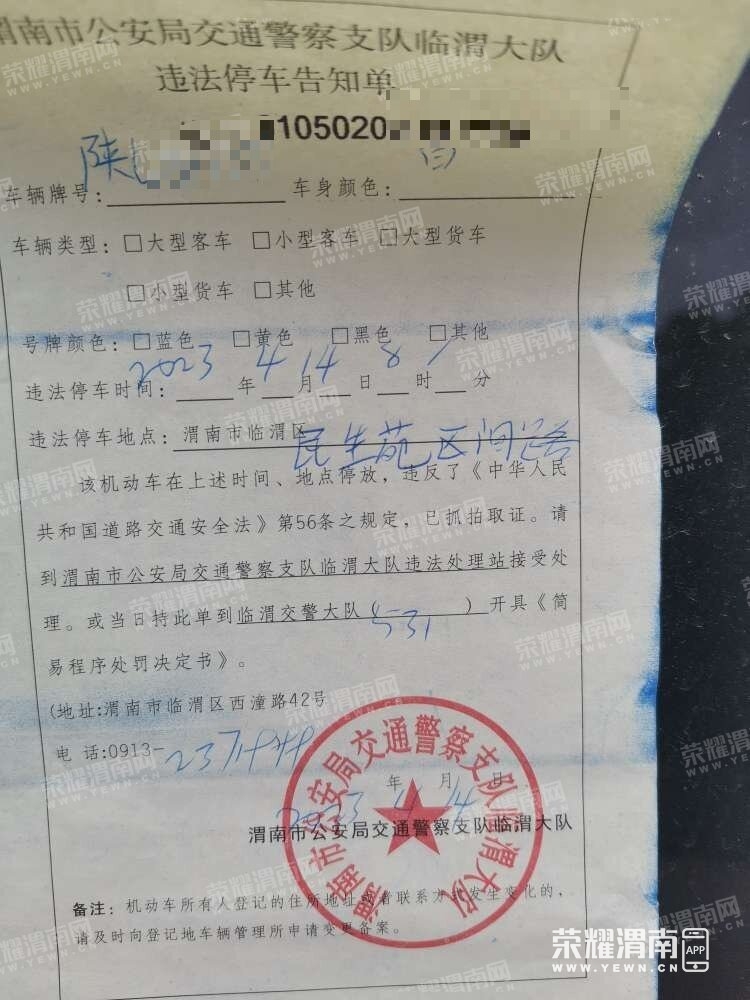 渭南市公安局交通警察支队临渭大队
违法停车告知单
105020
车辆牌号: 陕 车身颜色: 白
车辆类型: □大型客车 □小型客车 □大型货车
□小型货车 □其他
号牌颜色: □蓝色 □黄色 □黑色 □其他
违法停车时间: 2023 年 4 月 14 日 8 时 1 分
违法停车地点: 渭南市临渭区 民生苑区间路
该机动车在上述时间、地点停放,违反了《中华人民
共和国道路交通安全法》第56条之规定,已抓拍取证。请
到渭南市公安局交通警察支队临渭大队违法处理站接受处
理。或当日持此单到临渭交警大队( 531 )开具《简
易程序处罚决定书》。
(地址:渭南市临渭区西潼路42号
电 话:0913-
2023 年 4 月 14 日
渭南市公安局交通警察支队临渭大队
渭南市公安局交通警察支队临渭大队
备注: 机动车所有人登记的住所地址或者联系方式发生变化的,
请及时向登记地车辆管理所申请变更备案。
荣耀渭南 APP
WWW.YEWN.CN
荣耀渭南网
WWW.YEWN.CN